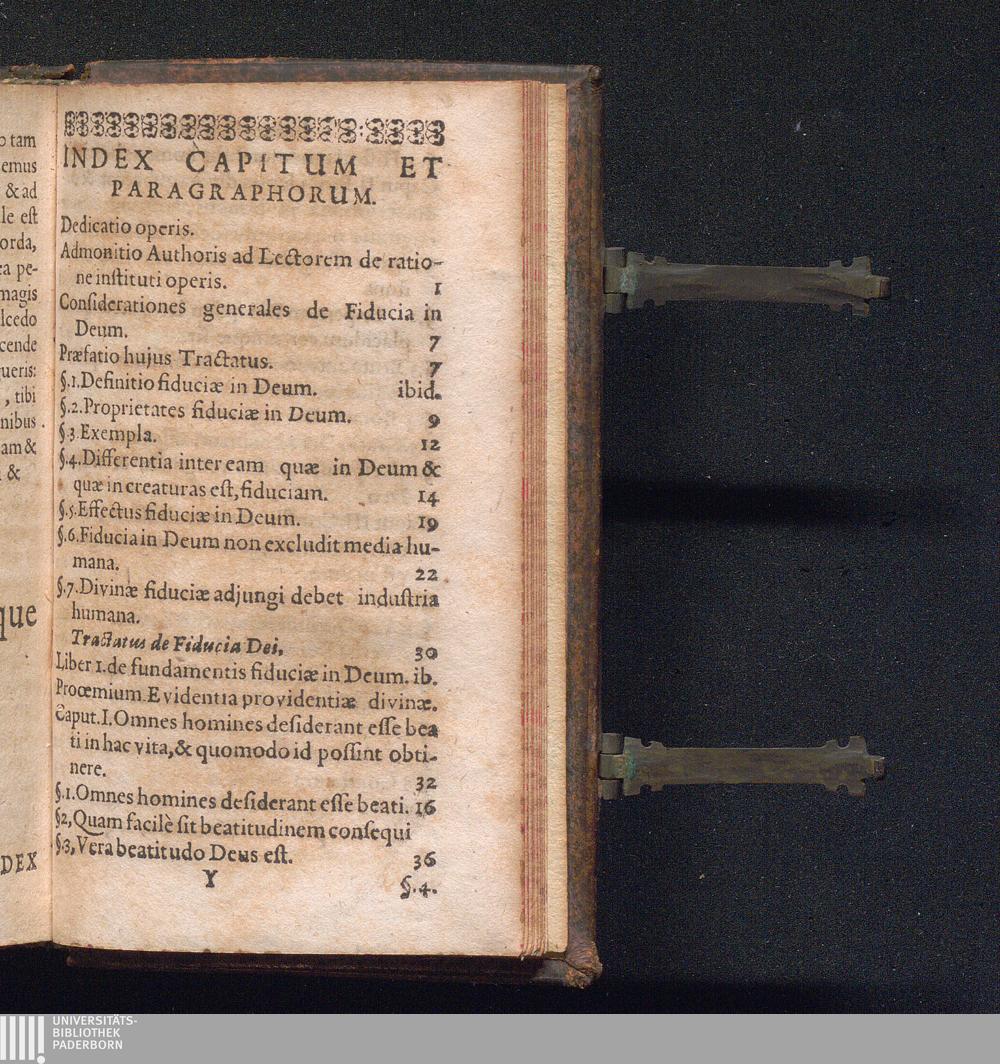 o tam
emus
& ad
le eſt
orda,
ea pe-
magis
lcedo
cende
ueris:
, tibi
nibus.
am &
&
que
DEX
INDEX CAPITUM ET
PARAGRAPHORUM.
Dedicatio operis.
Admonitio Authoris ad Lectorem de ratio-
ne inſtituti operis. 1
Conſiderationes generales de Fiducia in
Deum. 7
Præfatio hujus Tractatus. 7
§.1.Definitio fiduciæ in Deum. ibid.
§.2.Proprietates fiduciæ in Deum. 9
§.3.Exempla. 12
§.4.Differentia inter eam quæ in Deum &
quæ in creaturas eſt, fiduciam. 14
§.5.Effectus fiduciæ in Deum. 19
§.6.Fiducia in Deum non excludit media hu-
mana. 22
§.7.Divinæ fiduciæ adjungi debet induſtria
humana.
Tractatus de Fiducia Dei, 30
Liber 1.de fundamentis fiduciæ in Deum. ib.
Proœmium.Evidentia providentiæ divinæ.
Caput.I.Omnes homines deſiderant eſſe bea
ti in hac vita, & quomodo id poſſint obti-
nere. 32
§.1.Omnes homines deſiderant eſſe beati. 16
§2,Quam facilè ſit beatitudinem conſequi
§.3,Vera beatitudo Deus eſt. 36
Y §.4.
UNIVERSITÄTS-
BIBLIOTHEK
PADERBORN